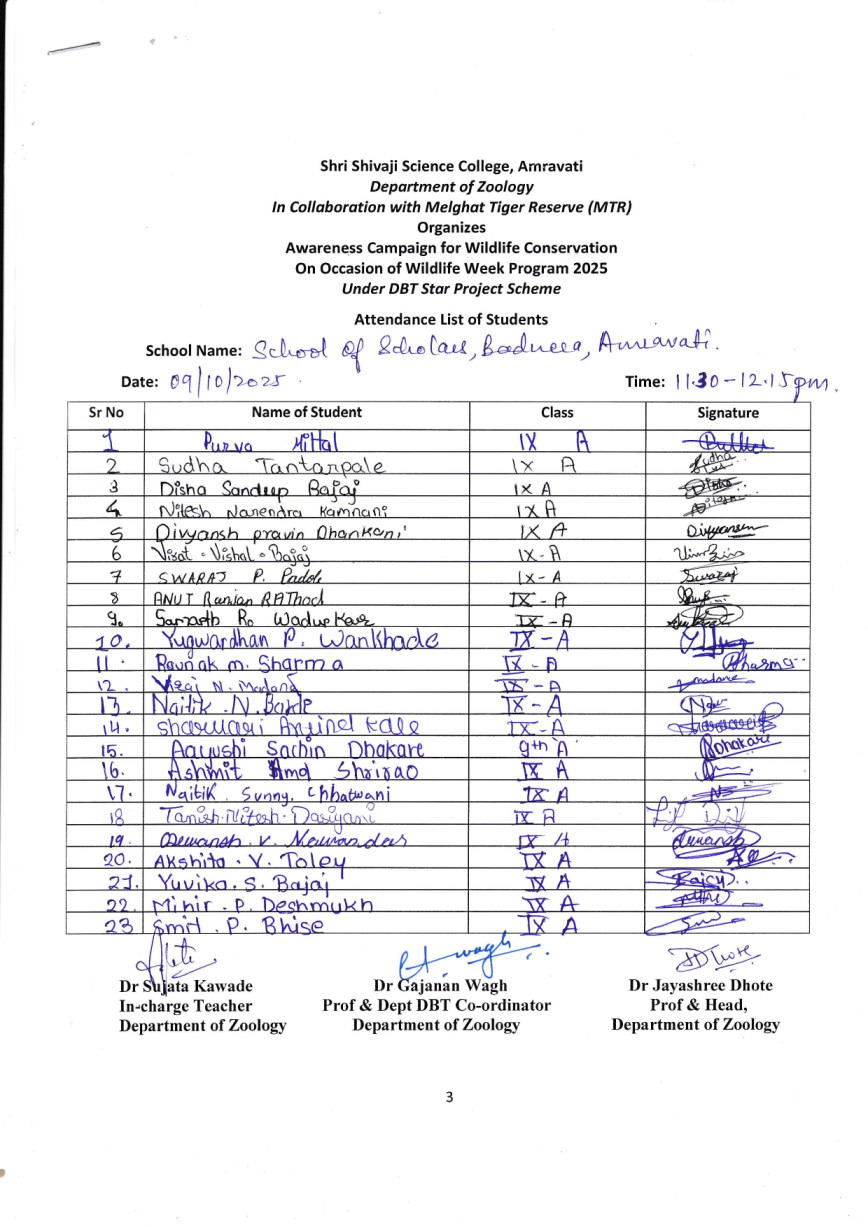 Shri Shivaji Science College, Amravati
Department of Zoology
In Collaboration with Melghat Tiger Reserve (MTR)
Organizes
Awareness Campaign for Wildlife Conservation
On Occasion of Wildlife Week Program 2025
Under DBT Star Project Scheme
Attendance List of Students
School Name: School of Scholars, Badnera, Amravati.
Date: 09/10/2025. Time: 11.30-12.15pm.
Sr No Name of Student Class Signature
1 Purva Mittal IX A
2 Sudha Tantarpale IX A Sudha
3 Disha Sandeep Bajaj IX A Disha
4 Nitesh Narendra Kamnani IX A
5 Divyansh pravin Dhankani IX A Divyansh
6 Vishal Bajaj IX-A
7 SWARAJ P. Padole IX-A Swaraj
8 ANUT Ranjan RAThod IX-A
9. Samarth R. Wadurkar IX-A
10. Yugwardhan P. Wankhade IX-A
11. Raunak m. Sharma IX-A Sharma
12. Viraj N. Madane IX-A madane
13. Naitik .N. Barde IX-A
14. sharwari kale IX-A
15. Aayushi Sachin Dhakare 9th A Dhakare
16. Ashmit Shrirao IX A
17. Naitik. Sunny. Chhatwani IX A
18 Tanish.Nitesh. IX A
19. Dewansh. V. IX A Dewansh
20. Akshita . V. Toley IX A
21. Yuvika. S. Bajaj IX A
22. Mihir . P. Deshmukh IX A
23 Smit . P. Bhise IX A
wagh JDhote
Dr Sujata Kawade Dr Gajanan Wagh Dr Jayashree Dhote
In-charge Teacher Prof & Dept DBT Co-ordinator Prof & Head,
Department of Zoology Department of Zoology Department of Zoology
3